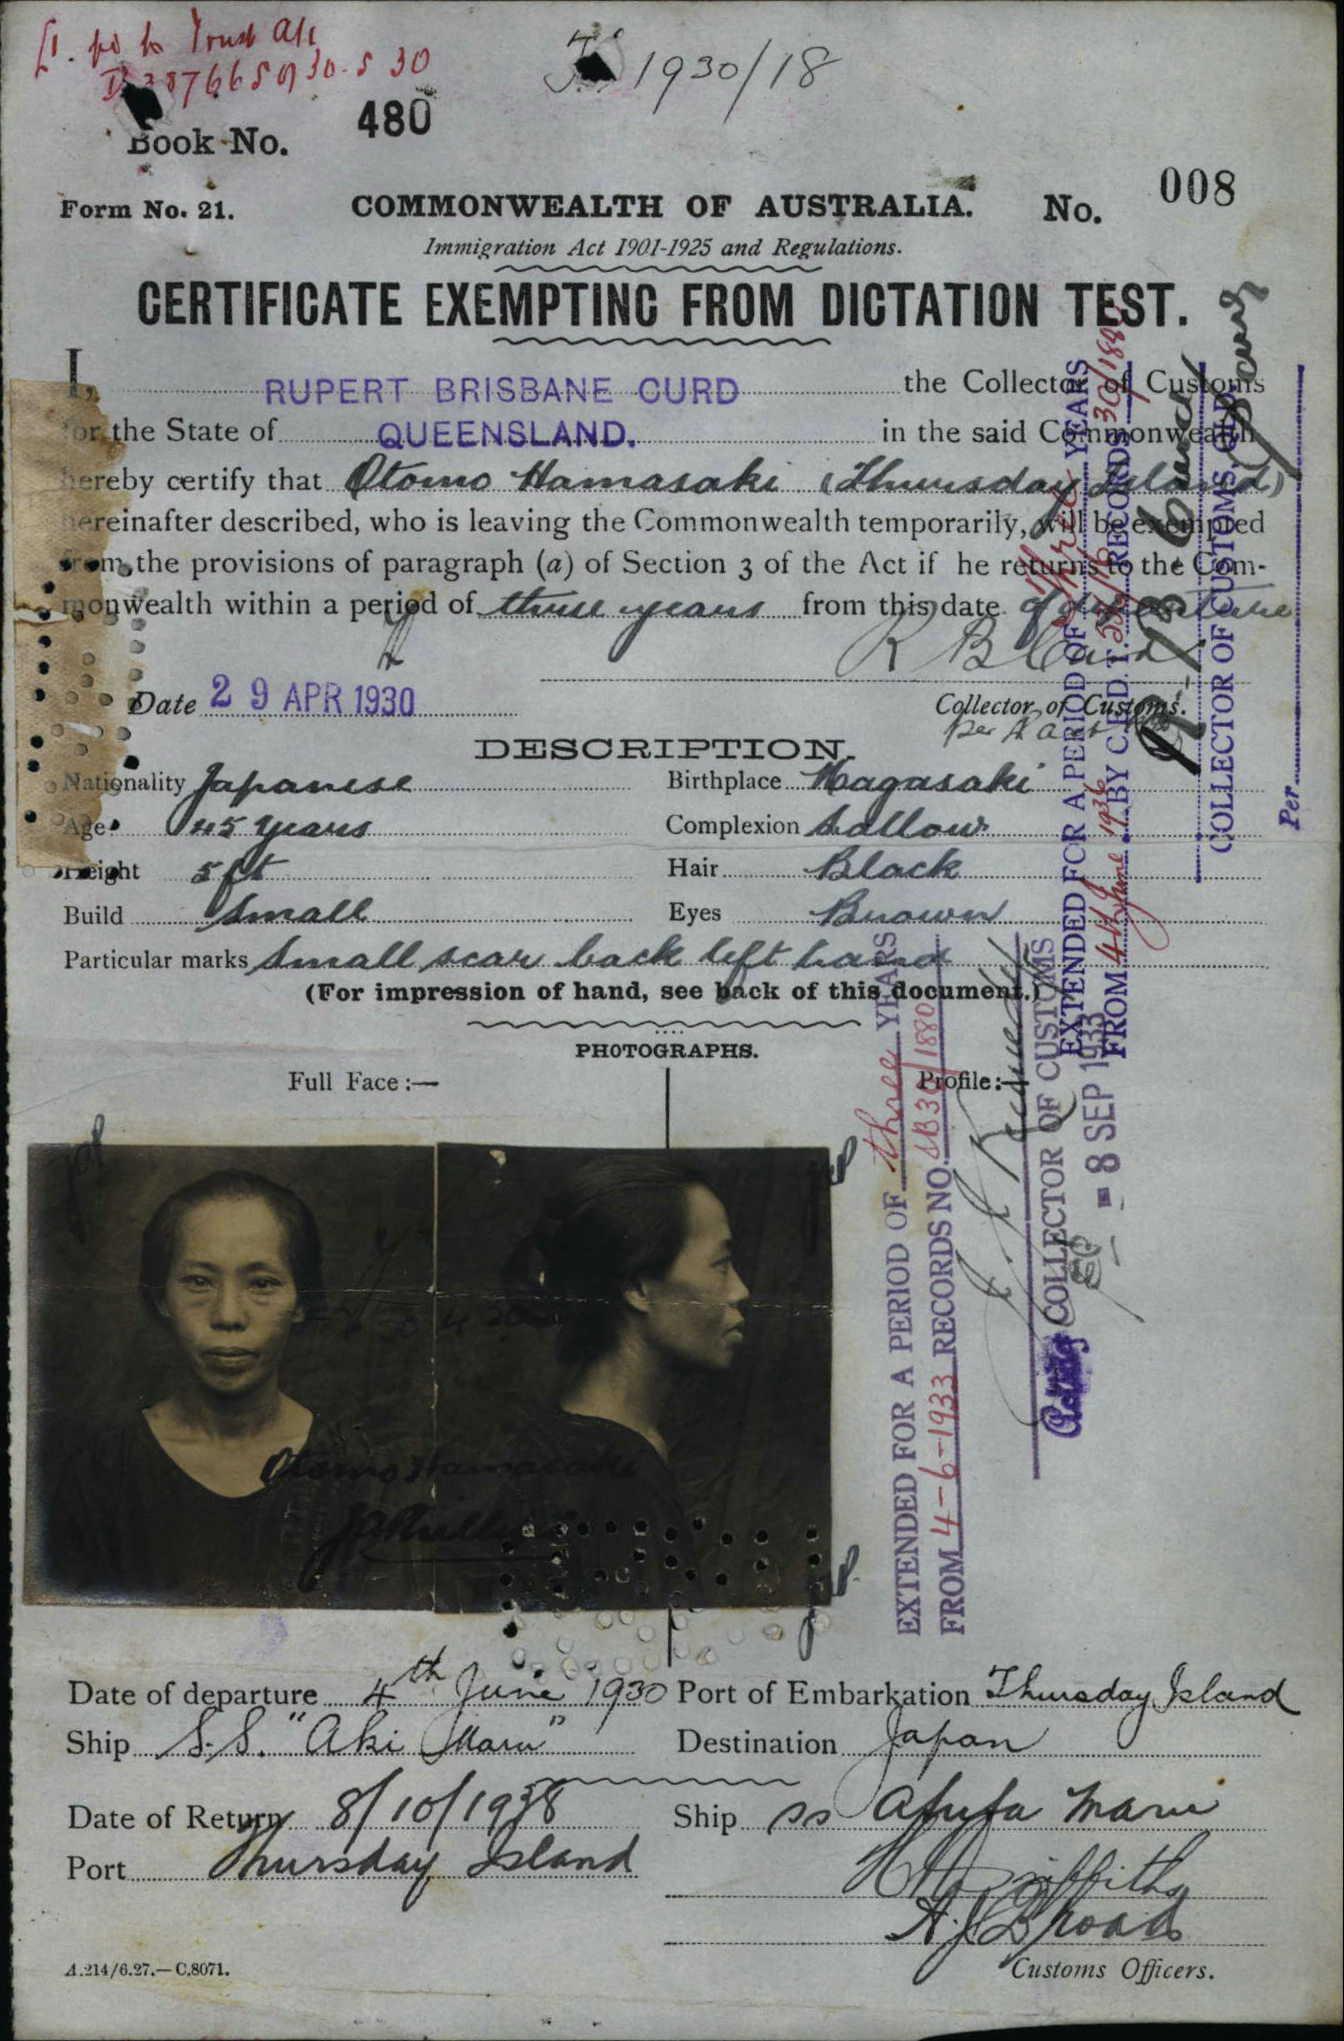 £1. pd to Trust A/c
30.5.30
1930/18
Book No. 480
Form No. 21. COMMONWEALTH OF AUSTRALIA. No. 008
Immigration Act 1901-1925 and Regulations.
CERTIFICATE EXEMPTING FROM DICTATION TEST.
I, RUPERT BRISBANE CURD the Collector of Customs
for the State of QUEENSLAND. in the said Commonwealth
hereby certify that Otomo Hamasaki (Thursday Island)
hereinafter described, who is leaving the Commonwealth temporarily, will be exempted
from the provisions of paragraph (a) of Section 3 of the Act if he returns to the Com-
monwealth within a period of three years from this date of departure
R B Curd
Date 29 APR 1930 Collector of Customs.
DESCRIPTION.
Nationality Japanese Birthplace Nagasaki
Age 45 years Complexion Sallow
Height 5 ft Hair Black
Build Small Eyes Brown
Particular marks Small scar back left hand
(For impression of hand, see back of this document.)
PHOTOGRAPHS.
Full Face :— Profile :—
Otomo Hamasaki
EXTENDED FOR A PERIOD OF three YEARS
FROM 4-6-1933 RECORDS NO.
COLLECTOR OF CUSTOMS
- 8 SEP 1933
EXTENDED FOR A PERIOD OF Three YEARS
FROM 4th June 1936 BY C.E.D.T. RECORDS
COLLECTOR OF CUSTOMS, QLD.
Per
Date of departure 4th June 1930 Port of Embarkation Thursday Island
Ship S.S. "Aki Maru" Destination Japan
Date of Return 8/10/1938 Ship ss Atuta Maru
Port Thursday Island
Griffiths
Customs Officers.
A.214/6.27.—C.8071.